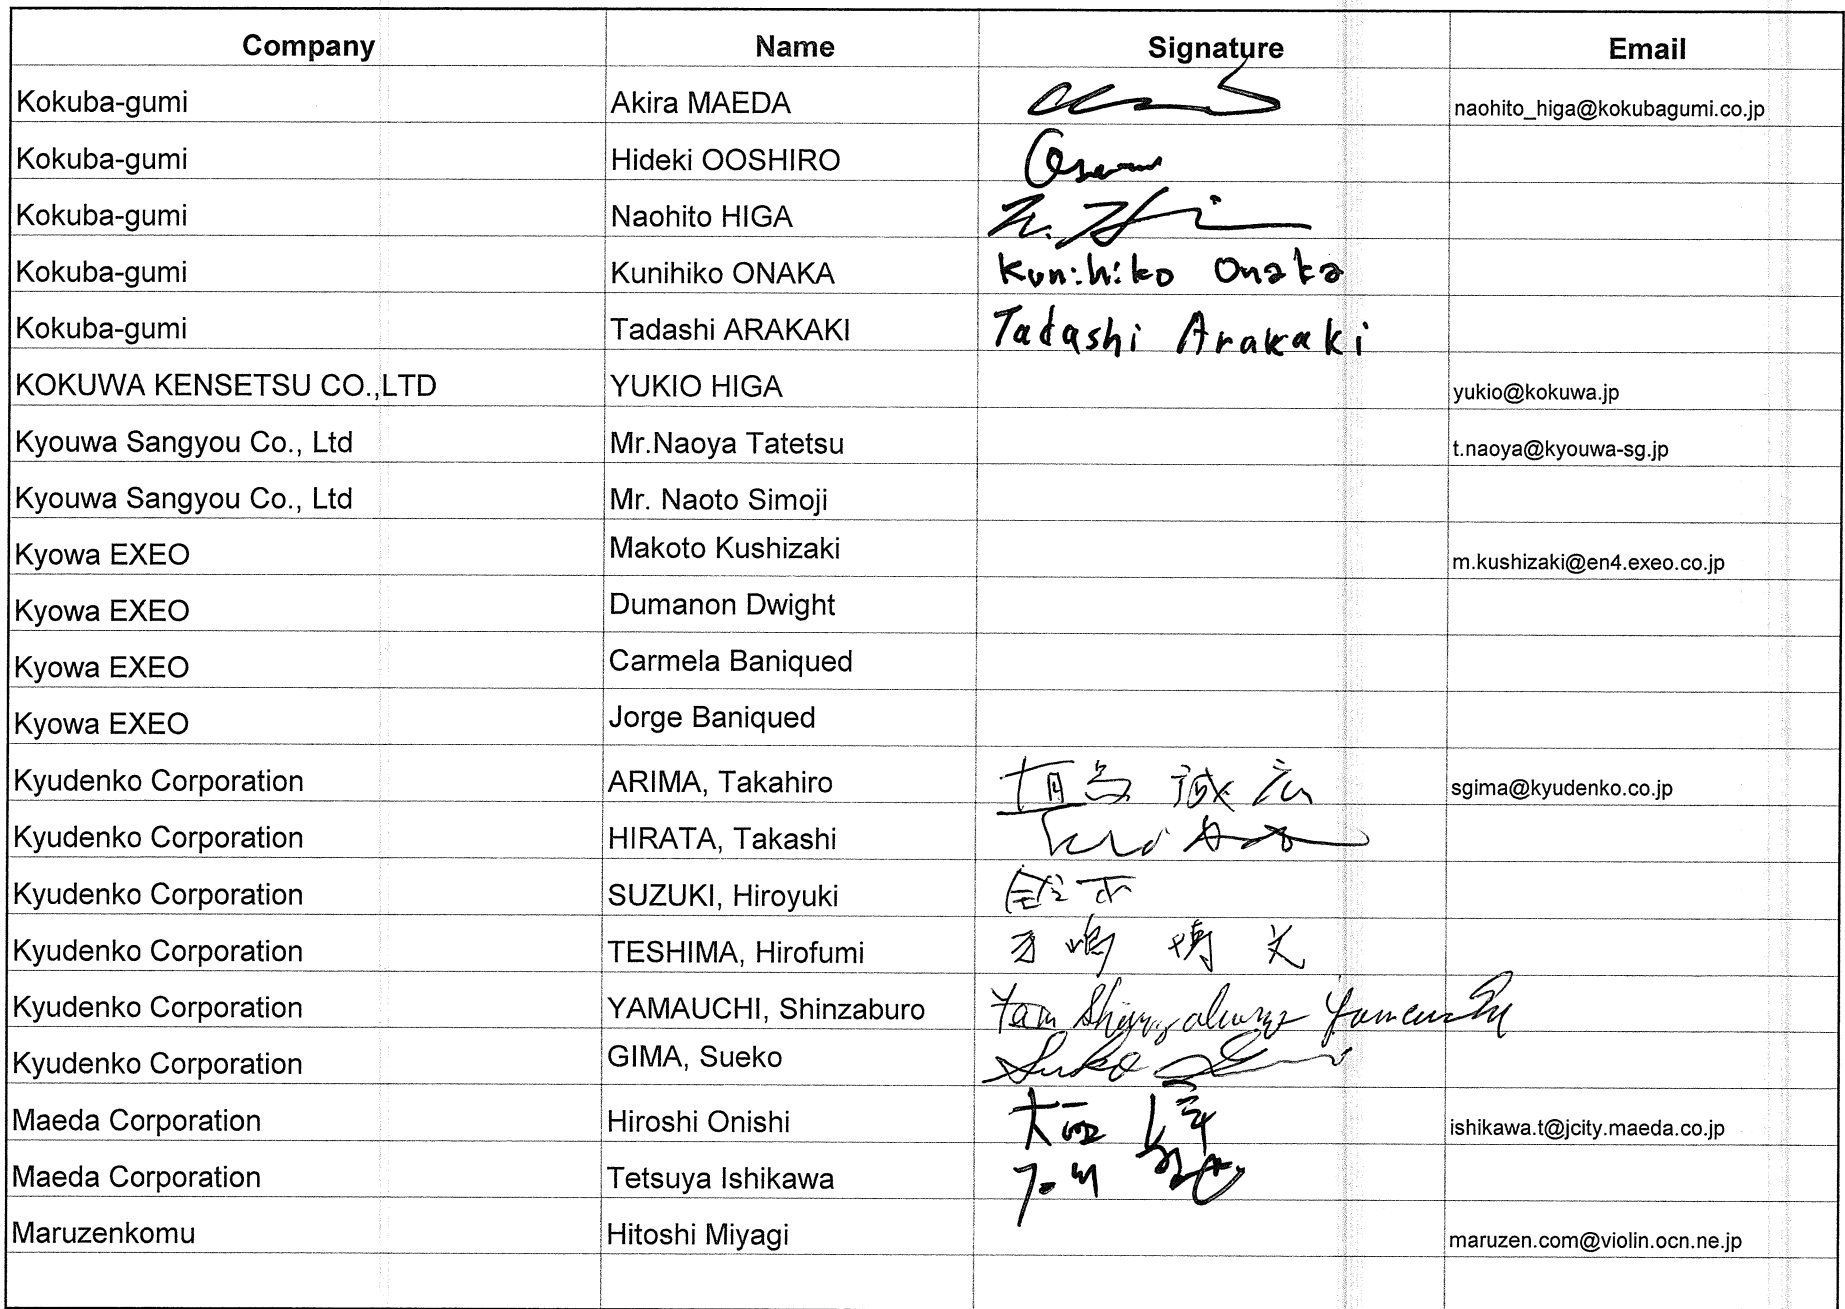 Company Name Signature Email
Kokuba-gumi Akira MAEDA naohito_higa@kokubagumi.co.jp
Kokuba-gumi Hideki OOSHIRO
Kokuba-gumi Naohito HIGA N. Hi
Kokuba-gumi Kunihiko ONAKA Kunihiko Onaka
Kokuba-gumi Tadashi ARAKAKI Tadashi Arakaki
KOKUWA KENSETSU CO.,LTD YUKIO HIGA yukio@kokuwa.jp
Kyouwa Sangyou Co., Ltd Mr.Naoya Tatetsu t.naoya@kyouwa-sg.jp
Kyouwa Sangyou Co., Ltd Mr. Naoto Simoji
Kyowa EXEO Makoto Kushizaki m.kushizaki@en4.exeo.co.jp
Kyowa EXEO Dumanon Dwight
Kyowa EXEO Carmela Baniqued
Kyowa EXEO Jorge Baniqued
Kyudenko Corporation ARIMA, Takahiro sgima@kyudenko.co.jp
Kyudenko Corporation HIRATA, Takashi
Kyudenko Corporation SUZUKI, Hiroyuki
Kyudenko Corporation TESHIMA, Hirofumi 手嶋 博文
Kyudenko Corporation YAMAUCHI, Shinzaburo
Kyudenko Corporation GIMA, Sueko
Maeda Corporation Hiroshi Onishi 大西 ishikawa.t@jcity.maeda.co.jp
Maeda Corporation Tetsuya Ishikawa 石川
Maruzenkomu Hitoshi Miyagi maruzen.com@violin.ocn.ne.jp